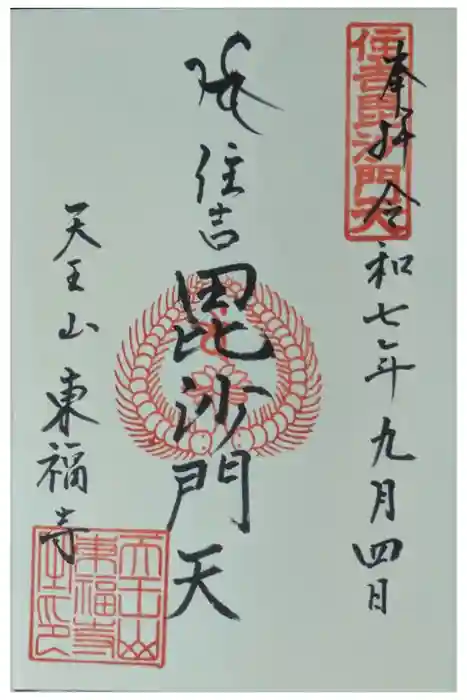 奉拝 令和七年九月四日
住吉毘沙門天
住吉 毘沙門天
天王山 東福寺
天王山
東福寺